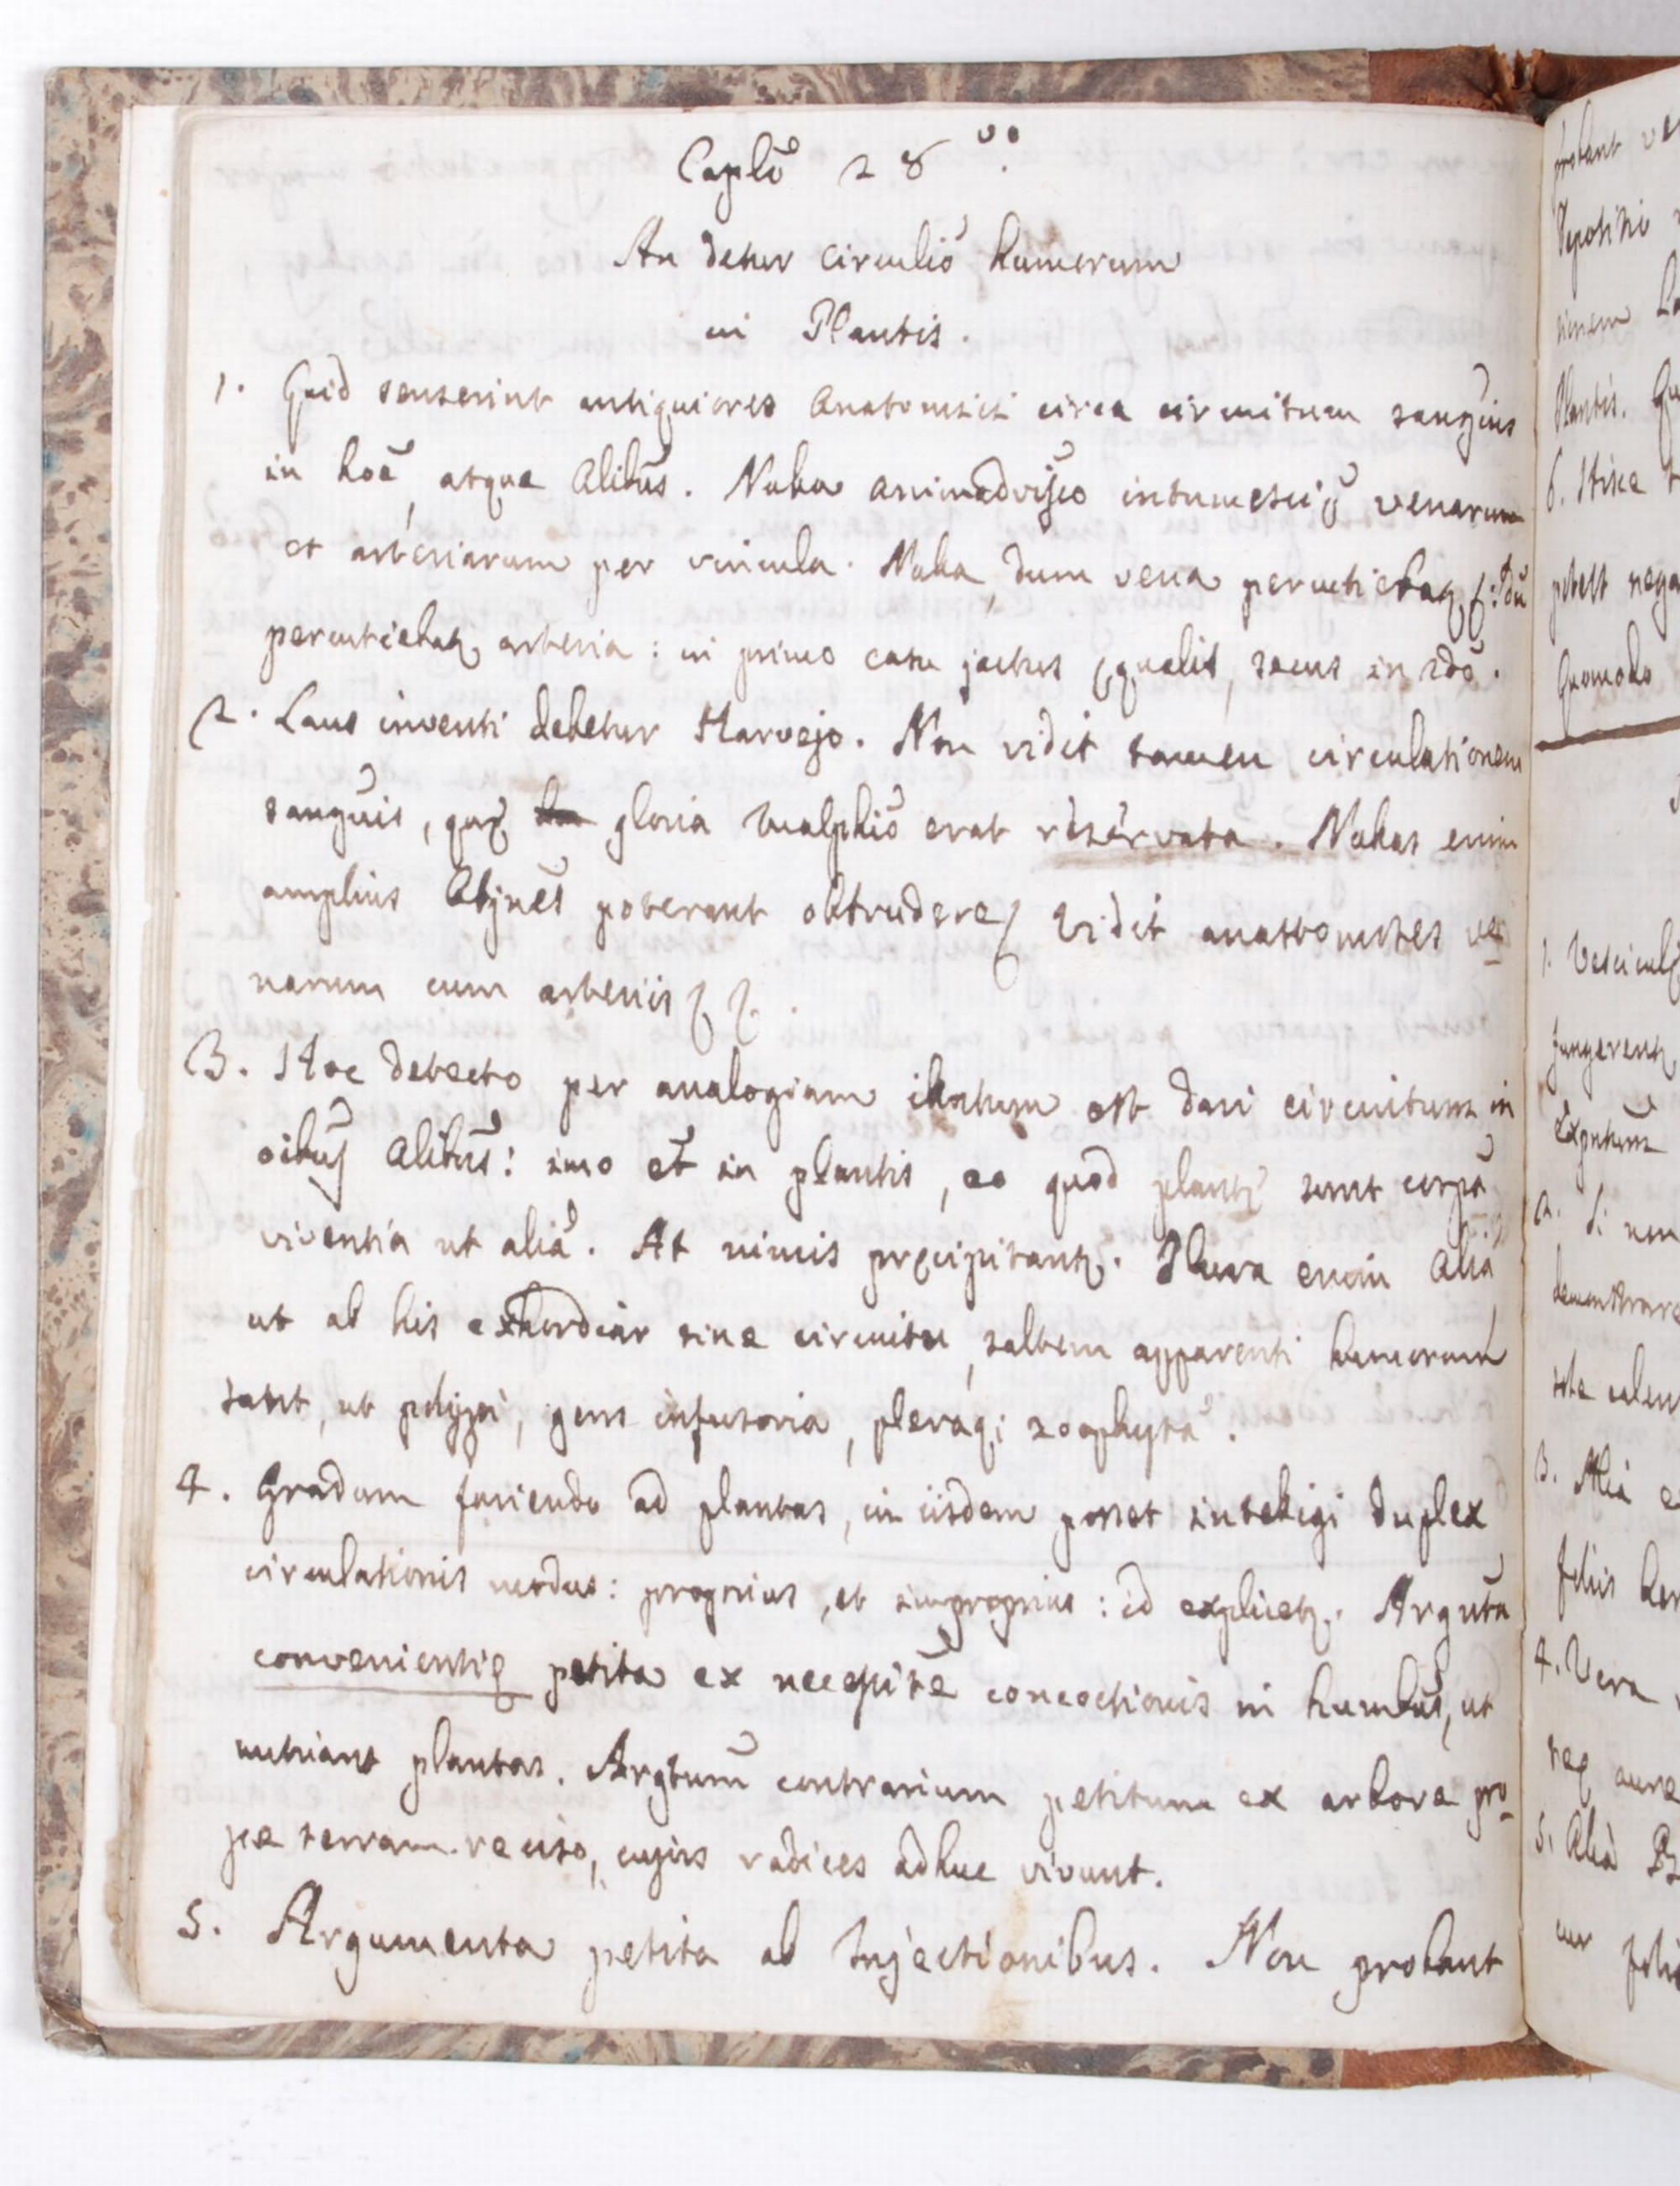 Caplũ 28vo.
An detur circulio humorum
in Plantis.
1. Quid senserint antiquiores Anatomici circa circuitum sanguis
in hoẽ, atque Alibus. Nulla animadvsio intumescie venarum
et arteriarum per vincula. Nulla, dum vena percutiebaꝗ, &: dũ
percutiebaꝗ arteria: in primo casu jactus ęqualis, secus in 2do.
2. Laus inventi debetur Harvejo. Non vidit tamen circulationem
sanguis, quę gloria Malphio erat reservata. Nubas enim
amplius poterant obtrudere / Vidit anastomoses ve
narum cum arteriis
3. Hoc detecto per analogiam illatum est dari circuitum in
oibus Alibus: imo et in plantis, eo quod plantę sunt corpa
viventia ut alia. At nimis pręcipitantꝗ. Plura enim Alia
ut ab his exhordiar sine circuitu, saltem apparenti humorum
sunt, ut polypi, gens infusoria, pleraqi zoophyta.
4. Gradum faciendo ad plantas, in iisdem posset intelligi duplex
circulationis modus: proprius, et improprius: id explicetꝗ. Arguta
convenientię petita ex necessite concoctionis in humbus, ut
nutriant plantas. Argtum contrarium petitum ex arbore pro-
pe terram reciso, cujus radices adhuc vivunt.
5. Argumenta petita ab Injectionibus. Non probant
probant
Plantis.
6. Hisce
potest nega
Quomodo
1. Vesiculę
2. Si non
demonstrare
3. Alia
foliis
4. Vera
5. Alia
cur